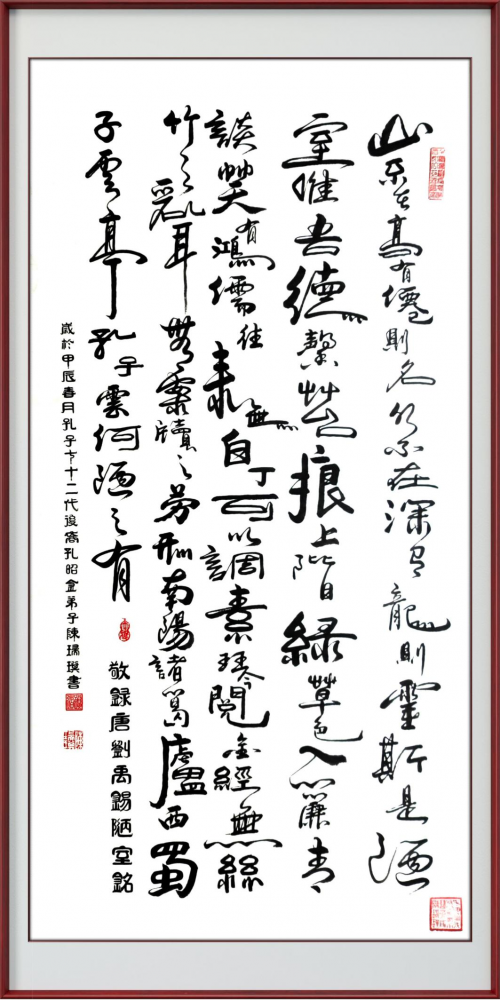 山不在高有僊則名水不在深有龍則靈斯是陋
室惟吾德馨苔痕上階綠草色入簾青
談笑有鴻儒往來無白丁可以調素琴閱金經無絲
竹之亂耳無案牘之勞形南陽諸葛廬西蜀
子雲亭孔子雲何陋之有
敬録唐劉禹錫陋室銘
歲於甲辰春月孔子七十二代後裔孔昭金弟子陳瑞書